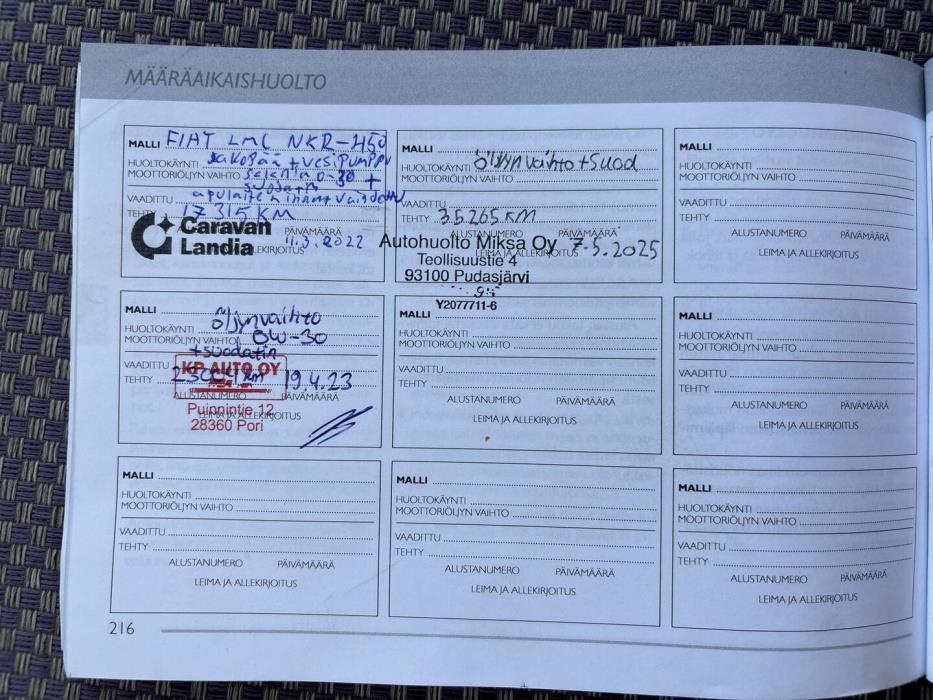 MÄÄRÄAIKAISHUOLTO
MALLI FIAT LMC NKR-450
HUOLTOKÄYNTI jakopää + vesipumppu
MOOTTORIÖLJYN VAIHTO Selenia 0-30 +
suodatin
VAADITTU apulaitehihnat vaihdettu
TEHTY 17315 KM
ALUSTANUMERO PÄIVÄMÄÄRÄ
11.3.2022
Caravan
Landia
LEIMA JA ALLEKIRJOITUS
MALLI
HUOLTOKÄYNTI öljyn vaihto + suod
MOOTTORIÖLJYN VAIHTO
VAADITTU
TEHTY 35265 KM
ALUSTANUMERO PÄIVÄMÄÄRÄ
Autohuolto Miksa Oy 7.5.2025
LEIMA JA ALLEKIRJOITUS
Teollisuustie 4
93100 Pudasjärvi
Y2077711-6
MALLI
HUOLTOKÄYNTI
MOOTTORIÖLJYN VAIHTO
VAADITTU
TEHTY
ALUSTANUMERO PÄIVÄMÄÄRÄ
LEIMA JA ALLEKIRJOITUS
MALLI öljynvaihto
HUOLTOKÄYNTI
MOOTTORIÖLJYN VAIHTO 0W-30
+suodatin
VAADITTU
KP AUTO OY
TEHTY km 19.4.23
ALUSTANUMERO PÄIVÄMÄÄRÄ
Puinnintie 12
LEIMA JA ALLEKIRJOITUS
28360 Pori
MALLI
HUOLTOKÄYNTI
MOOTTORIÖLJYN VAIHTO
VAADITTU
TEHTY
ALUSTANUMERO PÄIVÄMÄÄRÄ
LEIMA JA ALLEKIRJOITUS
MALLI
HUOLTOKÄYNTI
MOOTTORIÖLJYN VAIHTO
VAADITTU
TEHTY
ALUSTANUMERO PÄIVÄMÄÄRÄ
LEIMA JA ALLEKIRJOITUS
MALLI
HUOLTOKÄYNTI
MOOTTORIÖLJYN VAIHTO
VAADITTU
TEHTY
ALUSTANUMERO PÄIVÄMÄÄRÄ
LEIMA JA ALLEKIRJOITUS
MALLI
HUOLTOKÄYNTI
MOOTTORIÖLJYN VAIHTO
VAADITTU
TEHTY
ALUSTANUMERO PÄIVÄMÄÄRÄ
LEIMA JA ALLEKIRJOITUS
MALLI
HUOLTOKÄYNTI
MOOTTORIÖLJYN VAIHTO
VAADITTU
TEHTY
ALUSTANUMERO PÄIVÄMÄÄRÄ
LEIMA JA ALLEKIRJOITUS
216